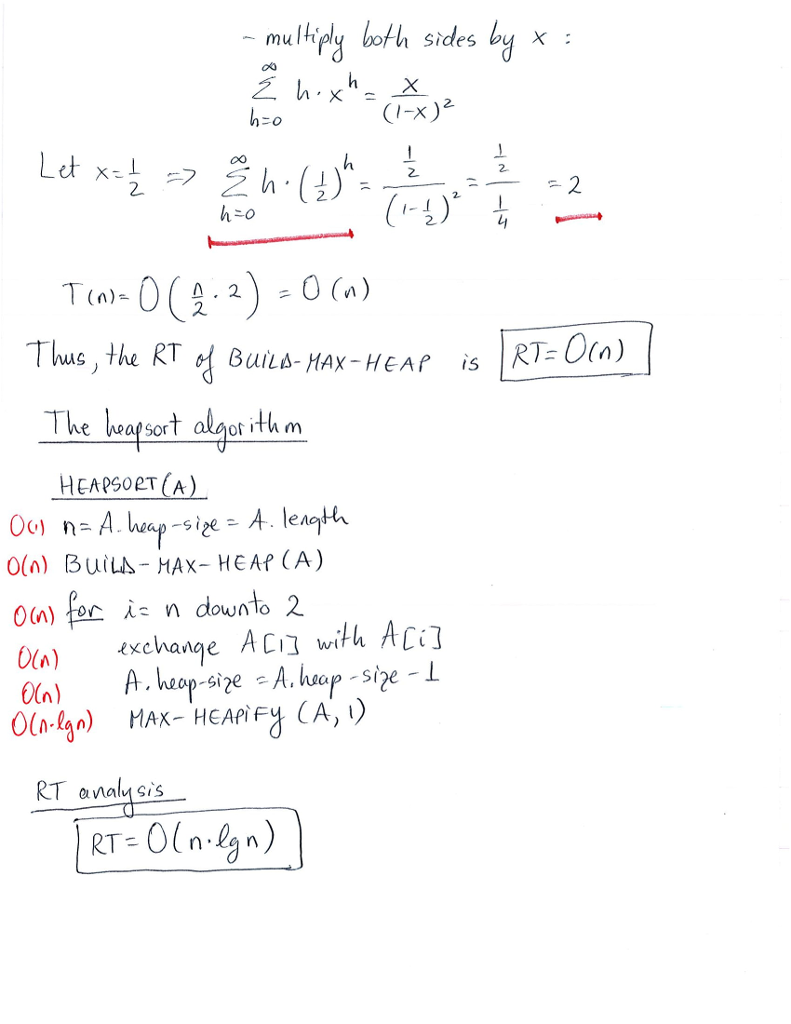 - multiply both sides by x :
∞ Σ h=0 h · x^h = x / (1-x)^2
Let x = 1/2 => ∞ Σ h=0 h · (1/2)^h = 1/2 / (1 - 1/2)^2 = 1/2 / 1/4 = 2
T(n) = O(n/2 · 2) = O(n)
Thus, the RT of BUILD-MAX-HEAP is RT = O(n)
The heapsort algorithm
HEAPSORT(A)
O(1) n = A.heap-size = A.length
O(n) BUILD-MAX-HEAP(A)
O(n) for i = n downto 2
O(n) exchange A[1] with A[i]
O(n) A.heap-size = A.heap-size - 1
O(n·lgn) MAX-HEAPIFY(A, 1)
RT analysis
RT = O(n·lgn)